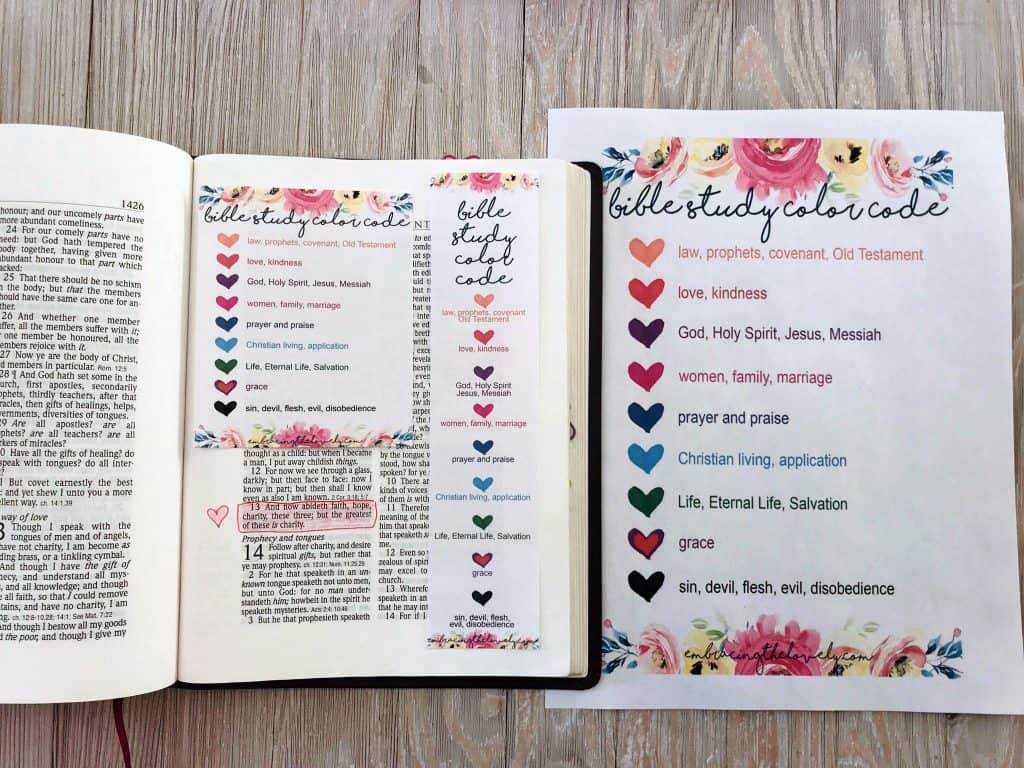 1426
honour; and our uncomely parts have
more abundant comeliness.
24 For our comely parts have no
need: but God hath tempered the
body together, having given more
abundant honour to that part which
lacked:
25 That there should be no schism
in the body; but that the members
should have the same care one for an-
other.
26 And whether one member
suffer, all the members suffer with it;
one member be honoured, all the
members rejoice with it.
27 Now ye are the body of Christ,
and members in particular. Rom. 12:5
28 ¶ And God hath set some in the
church, first apostles, secondarily
prophets, thirdly teachers, after that
miracles, then gifts of healings, helps,
governments, diversities of tongues.
29 Are all apostles? are all
prophets? are all teachers? are all
workers of miracles?
30 Have all the gifts of healing? do
all speak with tongues? do all inter-
31 But covet earnestly the best
and yet shew I unto you a more
excellent way. ch. 14:1,39
way of love
Though I speak with the
tongues of men and of angels,
have not charity, I am become as
sounding brass, or a tinkling cymbal.
And though I have the gift of
prophecy, and understand all mys-
and all knowledge; and though
have all faith, so that I could remove
mountains, and have no charity, I am
nothing. ch. 12:8-10,28; 14:1; See Mat. 7:22
And though I bestow all my goods
the poor, and though I give my
bible study color code
law, prophets, covenant, Old Testament
love, kindness
God, Holy Spirit, Jesus, Messiah
women, family, marriage
prayer and praise
Christian living, application
Life, Eternal Life, Salvation
grace
sin, devil, flesh, evil, disobedience
embracingthelovely.com
thought as a child: but when I became
a man, I put away childish things.
12 For now we see through a glass,
darkly; but then face to face: now I
know in part; but then shall I know
even as also I am known. 2 Cor. 3:18; 5:7
13 And now abideth faith, hope,
charity, these three; but the greatest
of these is charity.
Prophecy and tongues
14 Follow after charity, and desire
spiritual gifts, but rather that
ye may prophesy. ch. 12:31; Num. 11:25,29
2 For he that speaketh in an un-
known tongue speaketh not unto men,
but unto God: for no man under-
standeth him; howbeit in the spirit he
speaketh mysteries. Acts 2:4; 10:46
3 But he that prophesieth speaketh
bible
study
color
code
law, prophets, covenant
Old Testament
love, kindness
God, Holy Spirit
Jesus, Messiah
women, family, marriage
prayer and praise
Christian living, application
Life, Eternal Life, Salvation
grace
sin, devil, flesh,
evil, disobedience
embracingthelovely.com
bible study color code
law, prophets, covenant, Old Testament
love, kindness
God, Holy Spirit, Jesus, Messiah
women, family, marriage
prayer and praise
Christian living, application
Life, Eternal Life, Salvation
grace
sin, devil, flesh, evil, disobedience
embracingthelovely.com